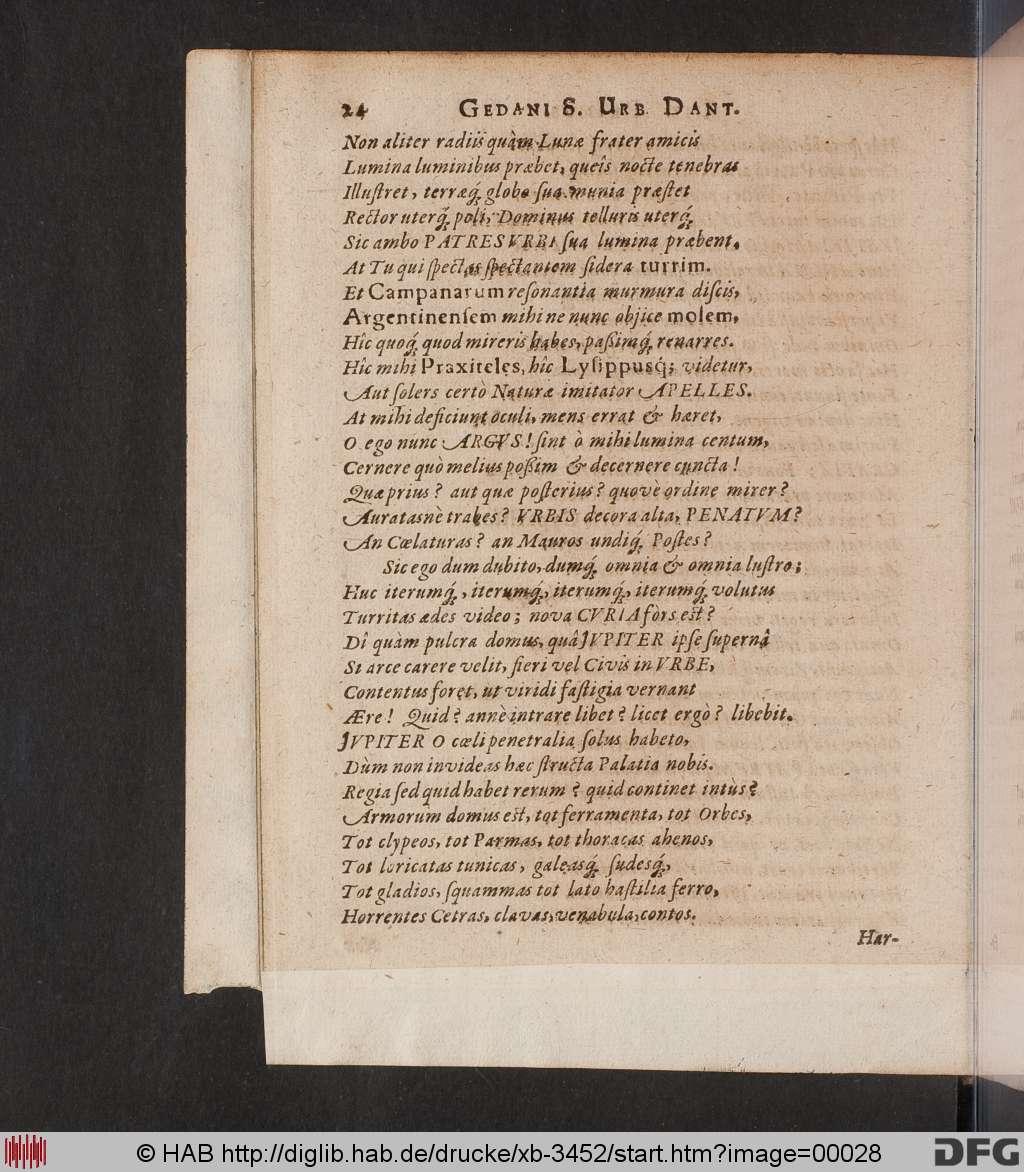 24 GEDANI S. URB. DANT.
Non aliter radiis quàm Lunæ frater amicis
Lumina luminibus præbet, queîs nocte tenebras
Illuſtret, terræq́; globo ſua munia præſtet
Rector uterq́; poli, Dominus telluris uterq́;
Sic ambo PATRES VRBI ſua lumina præbent.
At Tu qui ſpectas ſpectantem ſidera turrim.
Et Campanarum reſonantia murmura diſcis,
Argentinenſem mihi ne nunc objice molem,
Hîc quoq́; quod mireris habes, paßimq́; renarres.
Hîc mihi Praxiteles, hîc Lyſippusq́; videtur,
Aut ſolers certò Naturæ imitator APELLES.
At mihi deficiunt oculi, mens errat & hæret,
O ego nunc ARGVS! ſint ò mihi lumina centum,
Cernere quò melius poßim & decernere cuncta!
Quæ prius? aut quæ poſterius? quovè ordine mirer?
Auratasnè trabes? VRBIS decora alta, PENATVM?
An Cœlaturas? an Mauros undiq́; Poſtes?
Sic ego dum dubito, dumq́; omnia & omnia luſtro;
Huc iterumq́;, iterumq́;, iterumq́;, iterumq́; volutus
Turritas ædes video; nova CVRIA fors est?
Dî quàm pulcra domus, quâ JVPITER ipſe ſupernâ
Si arce carere velit, fieri vel Civis in VRBE,
Contentus foret, ut viridi faſtigia vernant
Ære! Quid? annè intrare libet? licet ergò? libebit.
JVPITER O cœli penetralia ſolus habeto,
Dùm non invideas hæc ſtructa Palatia nobis.
Regia ſed quid habet rerum? quid continet intùs?
Armorum domus est, tot ferramenta, tot Orbes,
Tot clypeos, tot Parmas, tot thoracas ahenos,
Tot loricatas tunicas, galeasq́; ſudesq́;,
Tot gladios, ſquammas tot lato haſtilia ferro,
Horrentes Cetras, clavas, venabula, contos.
Har-
© HAB http://diglib.hab.de/drucke/xb-3452/start.htm?image=00028
DFG